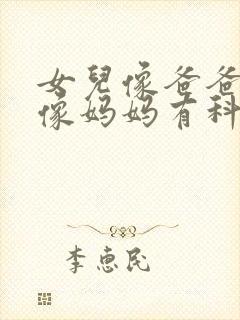 女兒像爸爸
像妈妈有科
李惠民